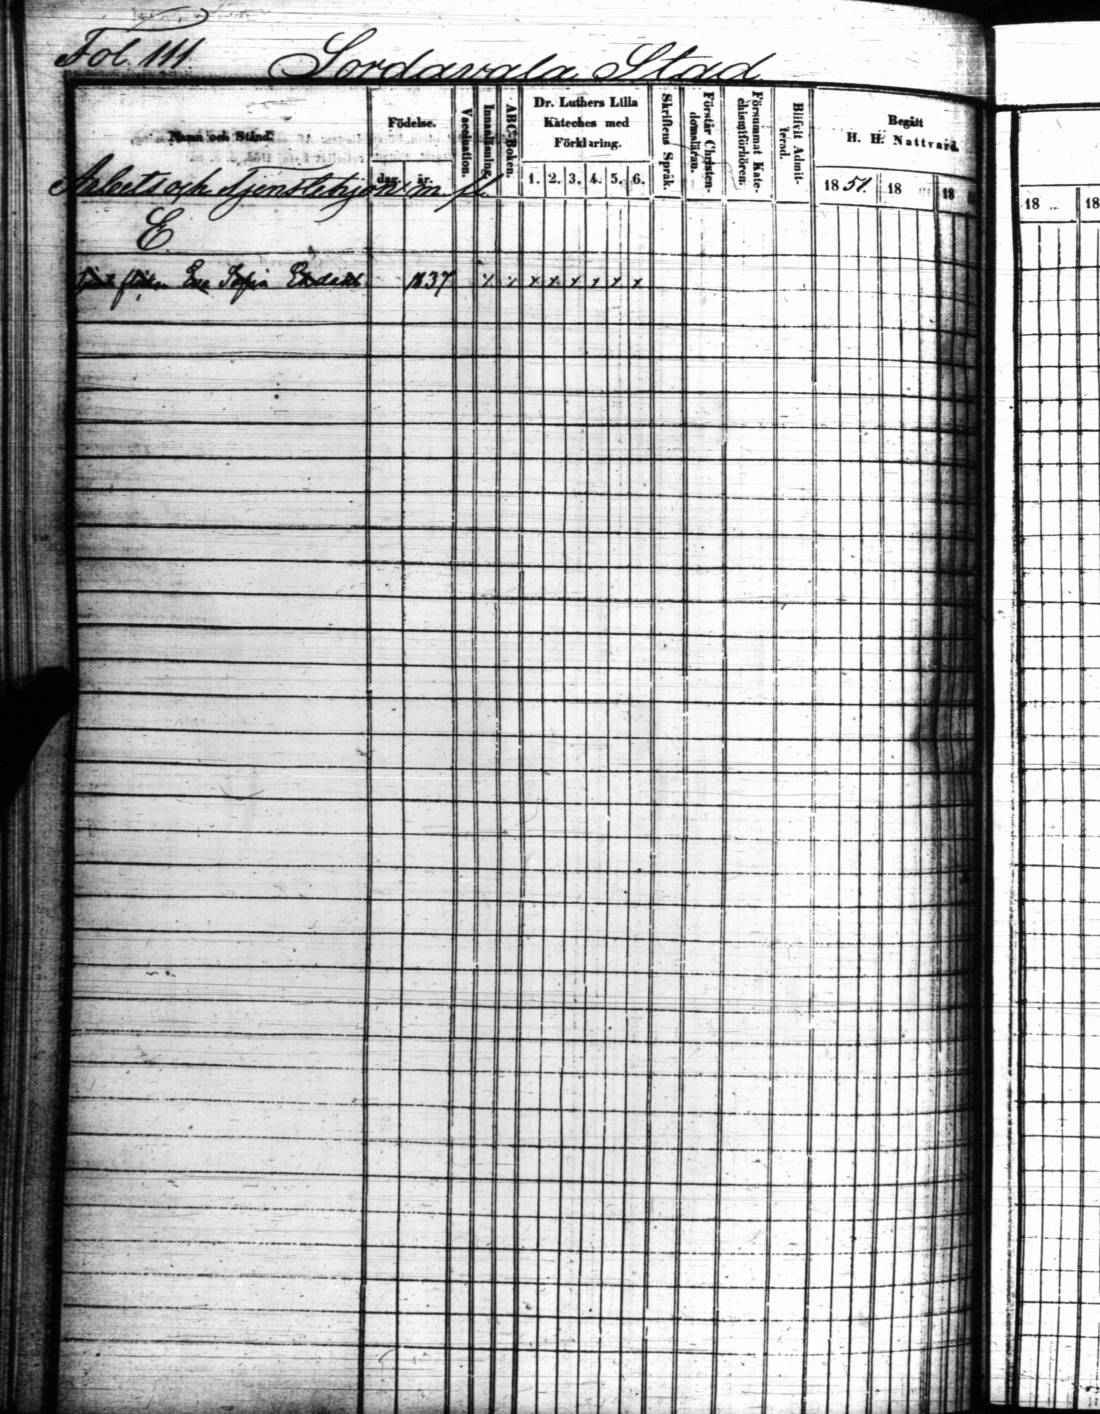 Fol. 111.
Sordavala Stad
Namn och Stånd.
Födelse.
dag. år.
Vaccination.
Innanläsning.
ABC-Boken.
Dr. Luthers Lilla
Kateches med
Förklaring.
1. 2. 3. 4. 5. 6.
Skriftens Språk.
Förstår Christen-
domsläran.
Försummat Kate-
chismiförhören.
Blifvit Admit-
terad.
Begått
H. H. Nattvard.
1851. 18 18
18 18
Arbets och Tjenstehjon m fl
E
Eva Sofia 1837 x x x x x x x x